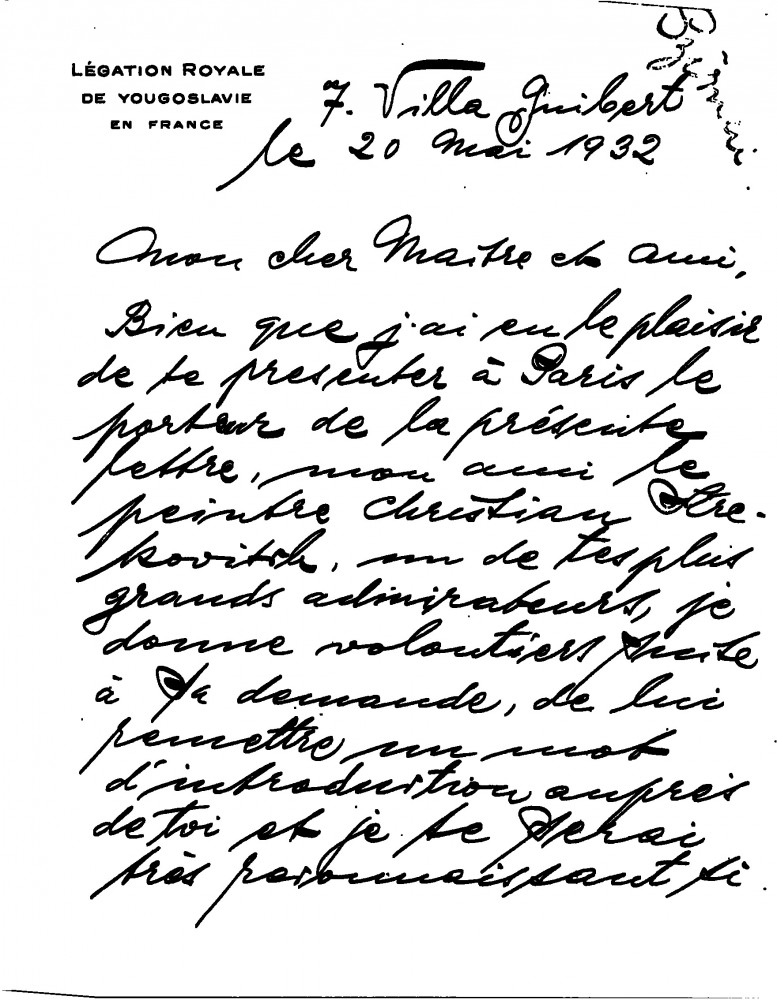 LÉGATION ROYALE
DE YOUGOSLAVIE
EN FRANCE
7. Villa Guibert
le 20 Mai 1932
Mon cher Maître et ami,
Bien que j'ai eu le plaisir
de te presenter à Paris le
porteur de la présente
lettre, mon ami le
peintre Christian Stre-
kovitch, un de tes plus
grands admirateurs, je
donne volontiers suite
à sa demande, de lui
remettre un mot
d'introduction auprès
de toi et je te serai
très reconnaissant si